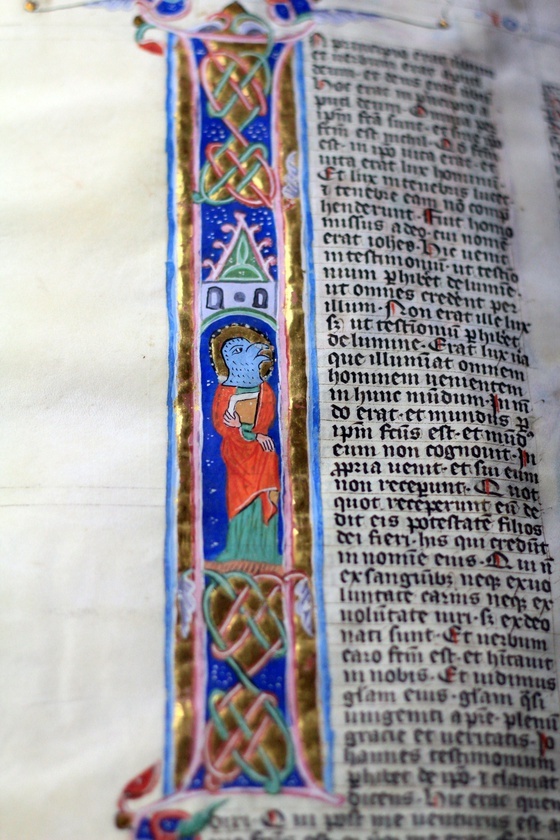 n principio erat uerbum
et uerbum erat apud
deum· et deus erat uerbū
hoc erat in principio a
pud deum· Omnia per
ipm̄ fc̄a sunt· et sine ipo
fc̄m est nichil· Qd̄ fc̄m
est· in ipō uita erat· et
uita erat lux hominū·
Et lux in tenebris lucet·
⁊ tenebre eam nō comp
henderunt· Fuit homo
missus a deo· cui nomē
erat ioh̄es· Hic uenit
in testimoniū· ut testīo
nium phibet de lumīe·
ut omnes credent per
illum· Non erat ille lux
sꝫ ut testīoniū phibēt
de lumine· Erat lux ūa
que illumīat omnem
hominem uenientem
in hunc mūdum· In m̄
do erat· et mundus p
ipm̄ fc̄us est· et mūd
eum non cognouit· In
ꝓpria uenit· et sui eum
non receperunt· Quot
quot receperunt eū· de
dit eis potestatē filios
dei fieri· his qui credūt
in nomīe eius· Qui n̄
ex sanguībꝫ neqꝫ ex uo
luntate carnis neqꝫ ex
uolūtate uiri· sꝫ ex deo
nati sunt· Et uerbum
caro fc̄m est· et hītauit
in nobis· Et uidimus
gl̄am eius· gl̄am q̄si
unigeniti a pr̄e· plenū
gratie et ueritatis· I
hannes testimonium
phibet de ipō· ⁊ clamat
dicens· Hic erat que
dixi· Qui post me uenturus est